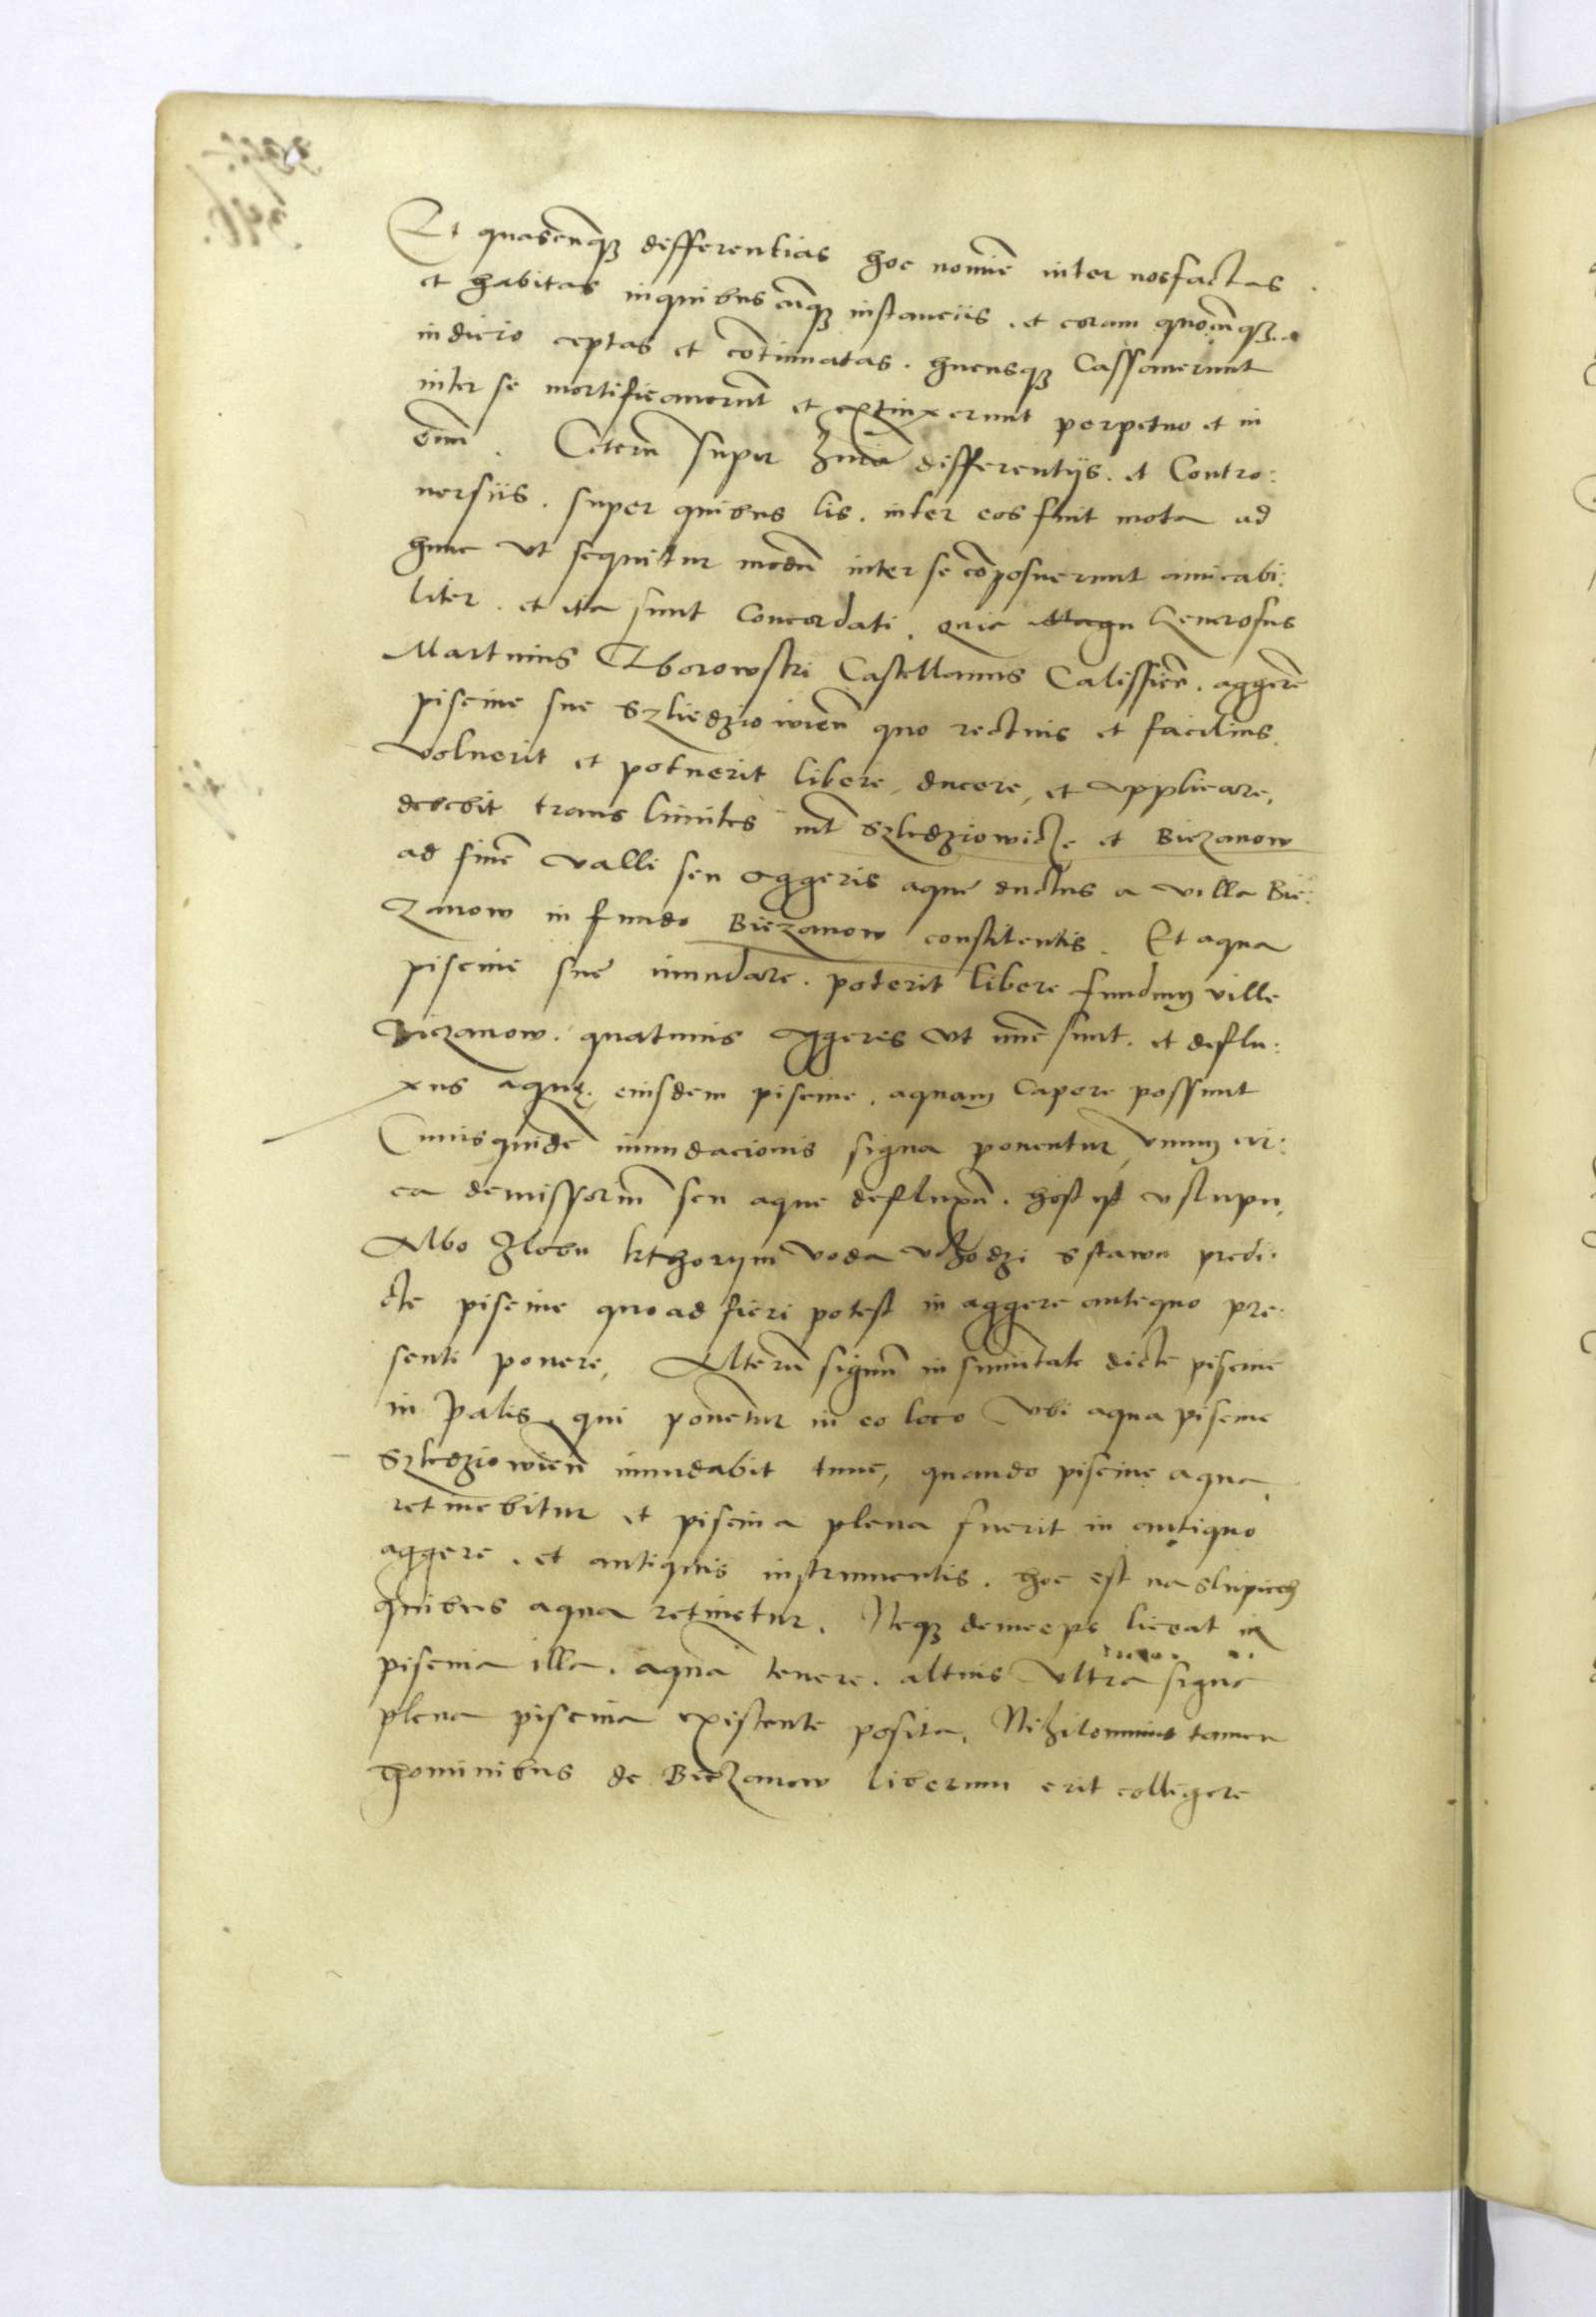 Et quascunq(ue) differentias hoc nomine inter nos factas
et habitas in quibuscunq(ue) instanciis . et coram quocunq(ue)
iudicio ceptas et continuatas . hucusq(ue) Cassauerunt
inter se mortificauerunt et extinxerunt perpetuo et in
euum . Ceterum super differentiis . et Contro:
uersiis . super quibus lis . inter eos fuit mota ad
hunc vt sequitur modum inter se composuerunt amicabi:
liter . et ita sunt Concordati . quia Magn Generosus
Martinus Sborowski Castellanus Calissien . aggerem
piscine sue Szliedziowien quo rectius et facilius
voluerit et potuerit libere, ducere, et applicare,
debebit trans limites int Szledziowicze et Biezanow
ad finem valli seu aggeris aque ductus a villa Bie:
zanow in fundo Biezanow consistentis . Et aqua
piscine sue inundare . poterit libere fundum ville
Biezanow . quatinus aggeres vt nunc sunt . et deflu:
xus aque . eiusdem piscine . aquam Capere possunt
Cuius quidem inundacionis signa ponentur, vnum cir:
ca demissorium seu aque defluxum . hoc est v slupu,
Albo zlobu kthorym voda vchodzi s stawu predi:
cte piscine quoad fieri potest in aggere antequo pre:
senti ponere, Alterum signum in sumitate dicte piscine
in palis . qui ponetur in eo loco vbi aqua piscine
Szledziowien inundabit tunc, quando piscine aqua
retinebitur et piscina plena fuerit in antiquo
aggere . et antiquis instrumentis . hoc est na slupiech
quibus aqua retinetur . Neq(ue) deinceps liceat in
piscina illa . aquam tenere . altius vltra signa
plena piscina existente posita, Nihilominus tamen
hominibus de Biezanow liberum erit colligere